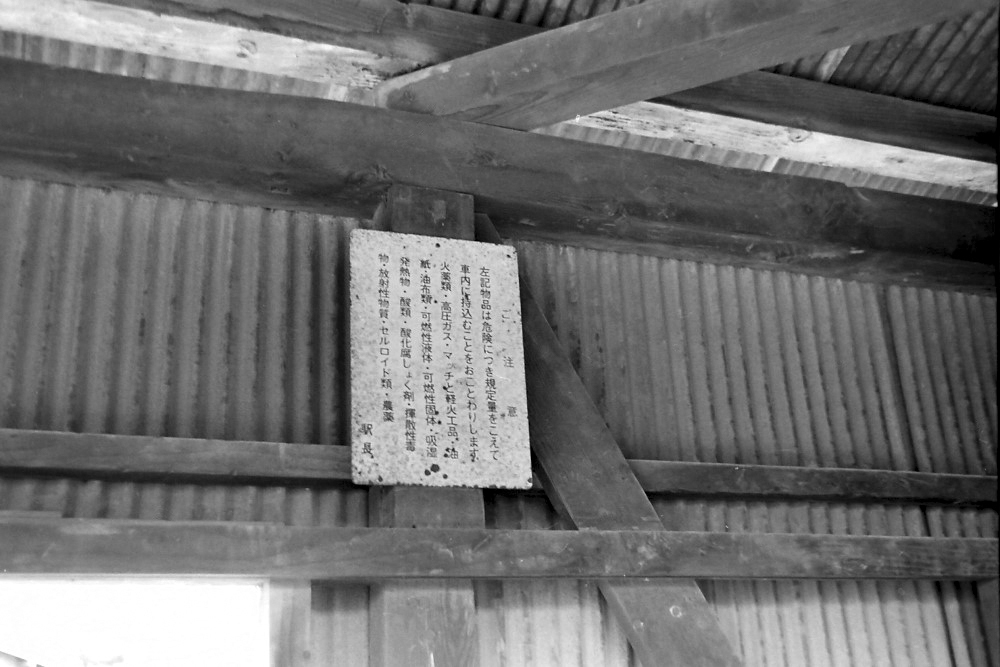 ご注意
左記物品は危険につき規定量をこえて
車内に持込むことをおことわりします
火薬類・高圧ガス・マッチと軽火工品・油
紙・油布類・可燃性液体・可燃性固体・吸湿
発熱物・酸類・酸化腐しょく剤・揮散性毒
物・放射性物質・セルロイド類・農薬
駅長